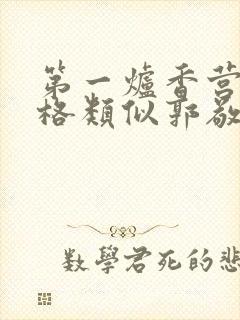 第一爐香营
格類似郭敬
數學君死的悲